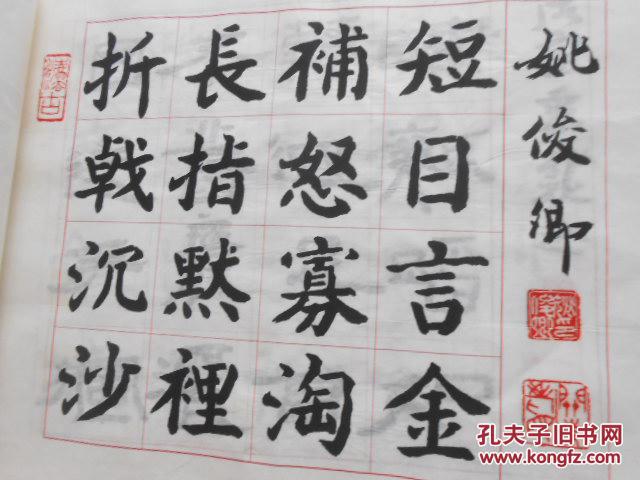 折長補短
戟指怒目
沉默寡言
沙裡淘金
姚俊卿
孔夫子旧书网
www.kongfz.com